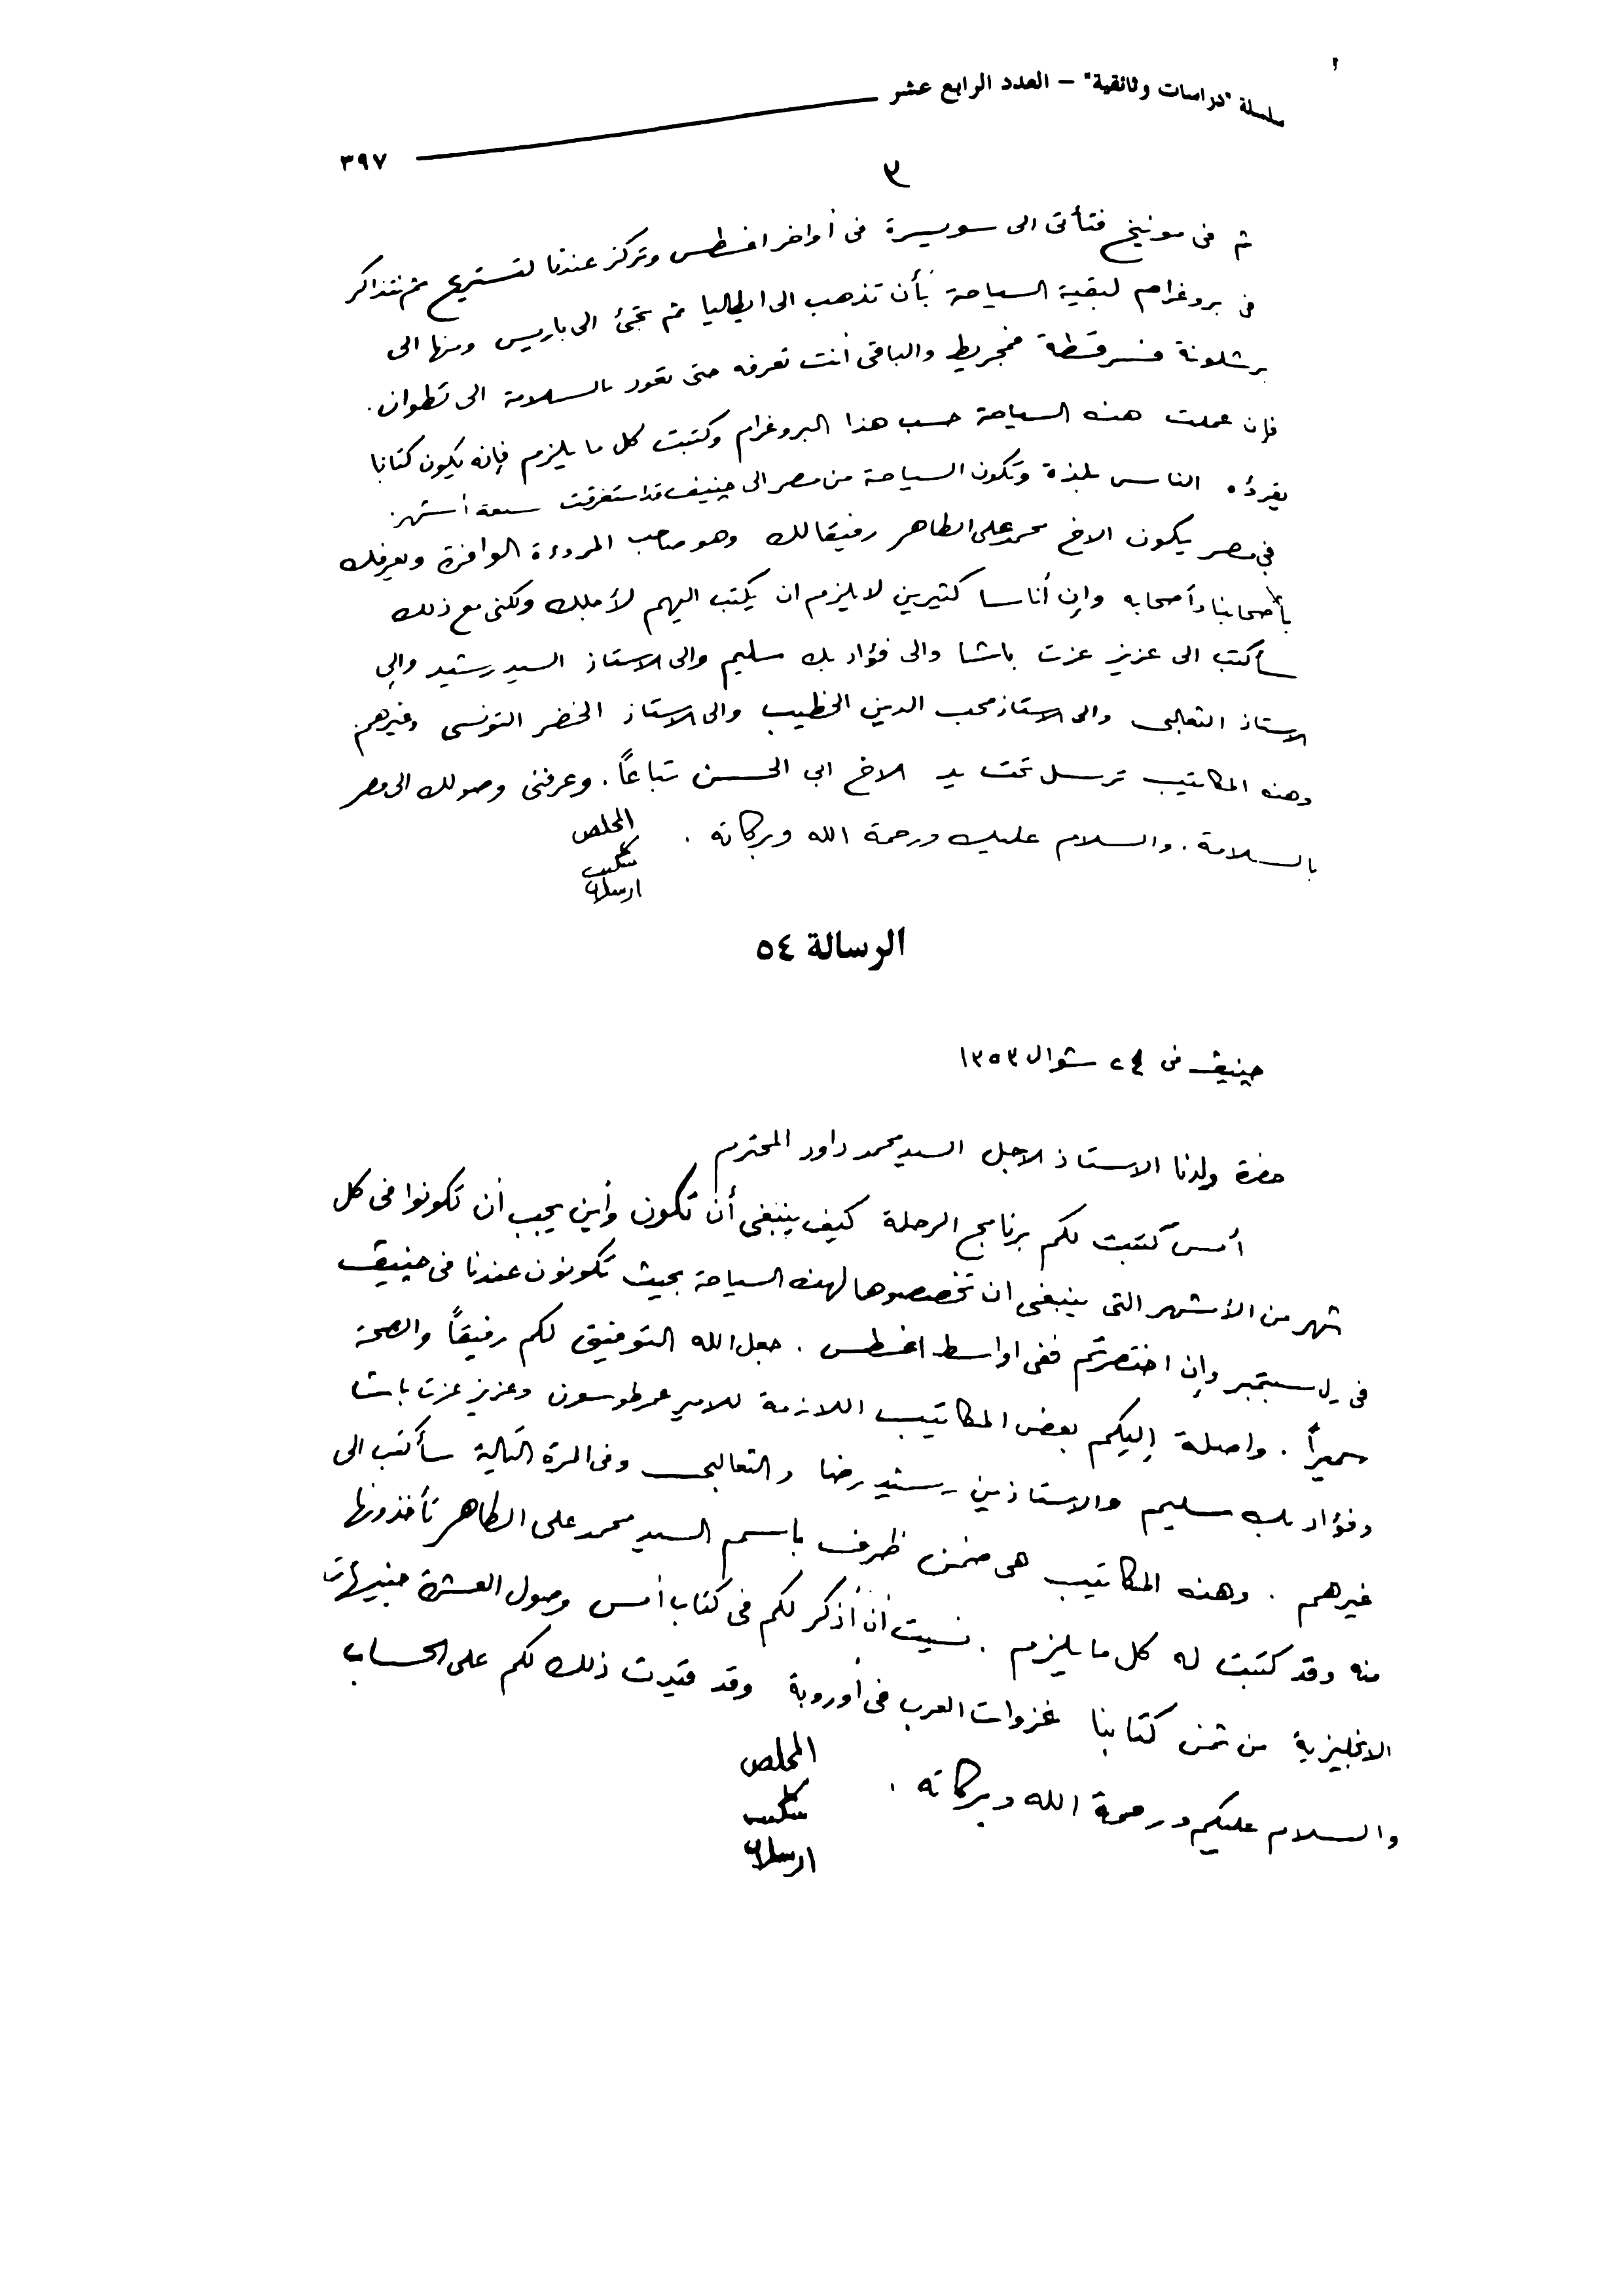 سلسلة "دراسات وثائقية" – العدد الرابع عشر
٣٩٧
٣
ثم فى مونيخ فتأتى الى سويسرة فى أواخر اغسطس وتركز عندنا لتستريح ثم نتذاكر
فى بروغرام لبقية السياحة بأن تذهب الى ايطاليا ثم تجئ الى باريس ومنها الى
برشلونة فسرقسطة فمجريط والباقى أنت تعرفه حتى تعود بالسلامة الى تطوان.
فإن عملت هذه السياحة حسب هذا البروغرام وكتبت كل ما يلزم فإنه يكون كتابا
يقرؤه الناس بلذة وتكون السياحة من مصر الى جنيف قد استغرقت سبعة أشهر.
فى مصر يكون الاخ محمد على الطاهر رفيقا لك وهو صاحب المروءة الوافرة ويعرفك
بأصحابنا وأصحابه وإن أناسا كثيرين لا يلزم ان يكتب اليهم لأجلك ولكنى مع ذلك
سأكتب الى عزيز عزت باشا والى فؤاد بك سليم والى الاستاذ السيد رشيد وإلى
الاستاذ الثعالبى والى الاستاذ محب الدين الخطيب والى الاستاذ الخضر التونسى وغيرهم
وهذه المكاتيب ترسل تحت يد الاخ ابى الحسن تباعاً. وعرفنى وصولك الى مصر
بالسلامة. والسلام عليك ورحمة الله وبركاته.
المخلص
شكيب
ارسلان
الرسالة ٥٤
جنيف فى ٢٤ شوال ١٣٥٣
حضرة ولدنا الاستاذ الاجل السيد محمد داود المحترم
أمس كتبت لكم برنامج الرحلة كيف ينبغى أن تكون وأين يجب أن تكونوا فى كل
شهر من الأشهر التى ينبغى ان تخصصوها لهذه السياحة بحيث تكونون عندنا فى جنيف
فى سبتمبر وإن اختصرتم ففى اواسط اغسطس. جعل الله التوفيق لكم رفيقاً والصحة
سميراً. واصلة إليكم بعض المكاتيب اللازمة للامير عمر طوسون وعزيز عزت باشا
وفؤاد بك سليم والاستاذين رشيد رضا والثعالبى وفى المرة التالية سأكتب الى
غيرهم. وهذه المكاتيب هى ضمن ظرف باسم السيد محمد على الطاهر تأخذونها
منه وقد كتبت له كل ما يلزم. نسيت أن أذكر لكم فى كتاب أمس وصول العشرة جنيهات
الانجليزية من ثمن كتابنا غزوات العرب فى أوروبة وقد قيدت ذلك لكم على الحساب
والسلام عليكم ورحمة الله وبركاته.
المخلص
شكيب
ارسلان